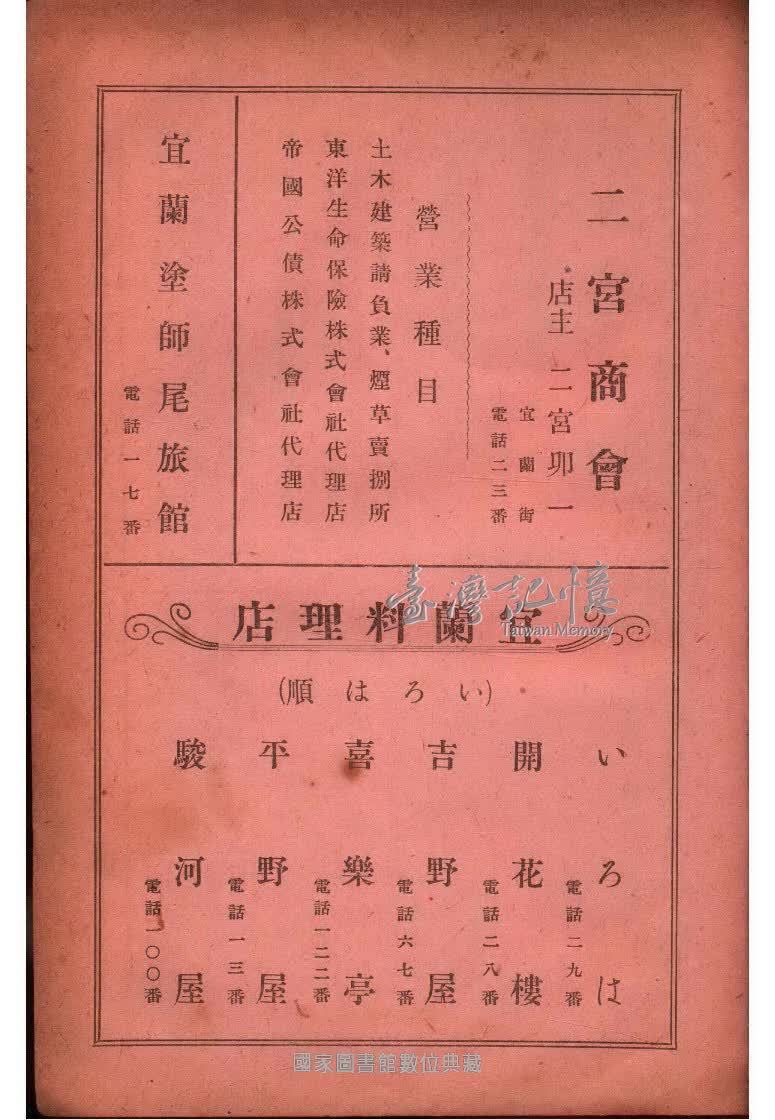 二宮商會
店主 二宮卯一
宜蘭街
電話二三番
營業種目
土木建築請負業、煙草賣捌所
東洋生命保險株式會社代理店
帝國公債株式會社代理店
宜蘭塗師尾旅館
電話一七番
宜蘭料理店
(いろは順)
いろは
電話二九番
開花樓
電話二八番
吉野屋
電話六七番
喜樂亭
電話一二二番
平野屋
電話一三番
駿河屋
電話一〇〇番
臺灣記憶
Taiwan Memory
國家圖書館數位典藏